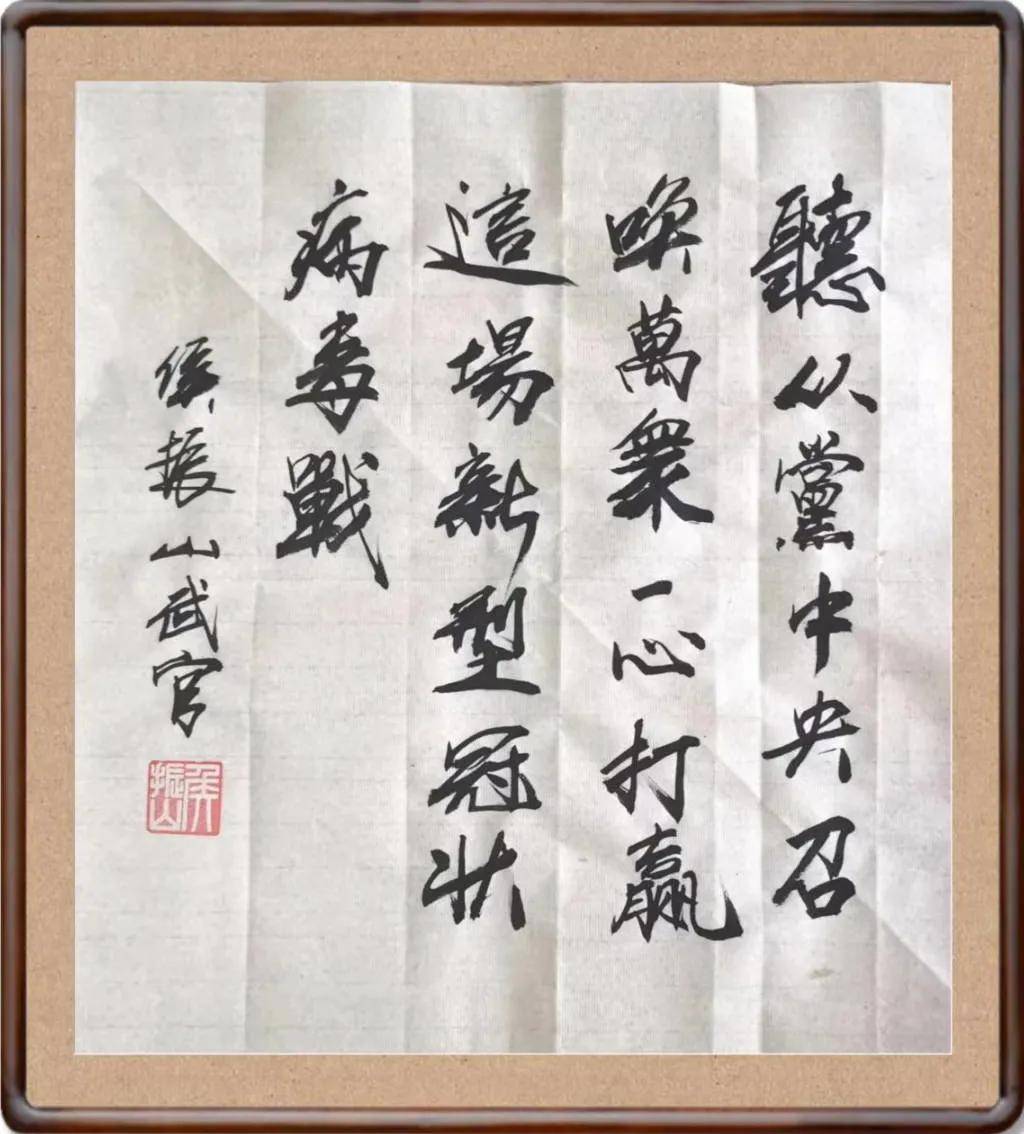 聽从黨中央召
唤萬衆一心打贏
這場新型冠狀
病毒戰
侯振山武官
侯振山